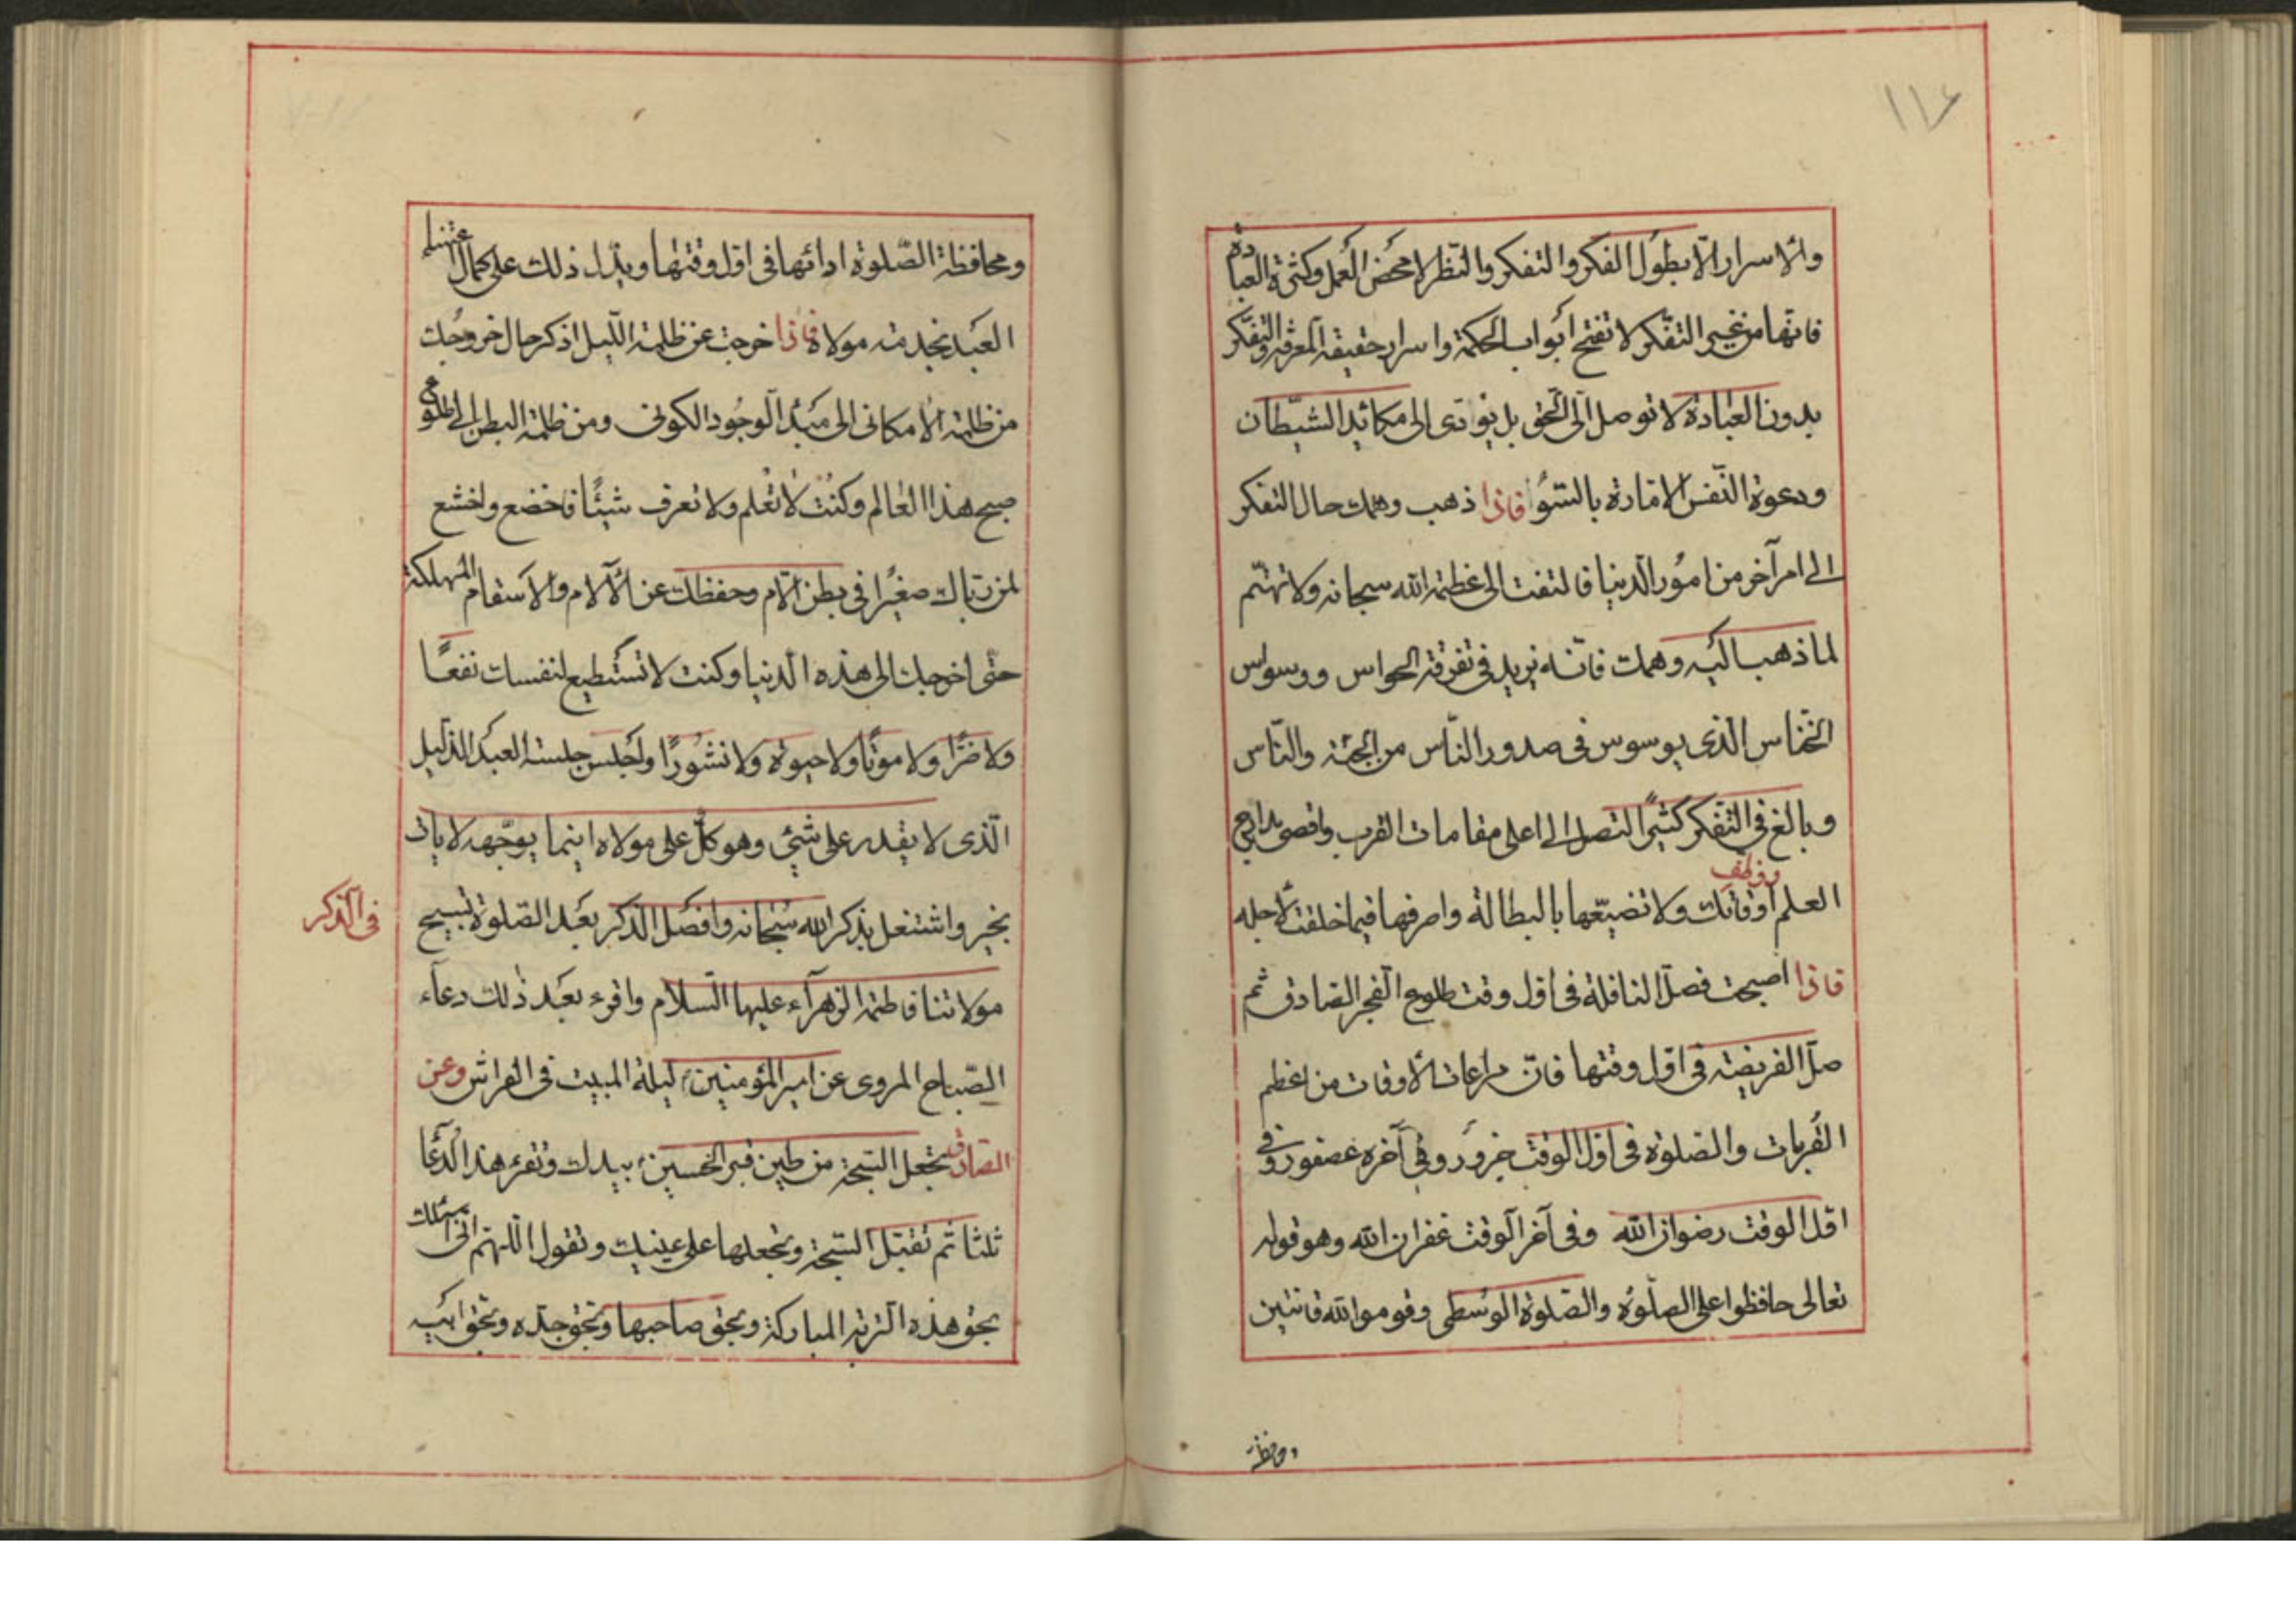 ١١٤
والاسرار الّا بطول الفكر والتفكر والنّظر لا محض العمل وكثرة العبادة
فانّها من غير التفّكر لا تفتح ابواب الحكمة واسرار حقيقة المعرفة والتفّكر
بدون العبادة لا توصل الى الحق بل تؤدّى الى مكائد الشيطان
ودعوة النّفس الامّارة بالسّوء فاذا ذهب وهمك حال التفكر
الى امر آخر من امور الّدنيا فالتفت الى عظمة الله سبحانه ولا تهتّم
لما ذهب اليه وهمك فانّه يزيد في تفرقة الحواس ووسواس
الخنّاس الّذى يوسوس فى صدور النّاس من الجنّة والنّاس
وبالغ فى التّفكر كثيرًا لتصل الى اعلى مقامات القرب واقصى مدارج
العلم ووظف اوقاتك ولا تضيّعها بالبطالة واصرفها فيما خلقت لأجله
فاذا اصبحت فصلّ النافلة فى اوّل وقت طلوع الفجر الصّادق ثم
صلّ الفريضة فى اوّل وقتها فانّ مراعات الاوقات من اعظم
القُربات والصّلوة فى اوّل الوقت جزور وفى آخره عصفور وفى
اوّل الوقت رضوان الله وفى آخر الوقت غفران الله وهو قوله
تعالى حافظوا على الصّلوة والصّلوة الوسطى وقوموا لله قانتين
ومحافظة
ومحافظة الصّلوة ادائها فى اوّل وقتها ويدّل ذلك على كمال
العبد بخدمة مولاه فاذا خرجت عن ظلمة اللّيل اذكر حال خروجك
من ظلمة الامكانى الى مبدء الوجود الكونى ومن ظلمة البطن الى طلوع
صبح هذا العالم وكنت لا تعلم ولا تعرف شيئًا فاخضع واخشع
لمن ربّاك صغيرًا فى بطن الّام وحفظك عن الآلام والاسقام المهلكة
حتّى اخرجك الى هذه الّدنيا وكنت لا تستطيع لنفسك نفعًا
ولا ضرًّا ولا موتًا ولا حيوة ولا نشورًا واجلس جلسة العبد الذليل
الّذى لا يقدر على شيئ وهو كلّ على مولاه اينما يوجّهه لا يات
بخير واشتغل بذكر الله سبحانه وافضل الذكر بعد الصّلوة تسبيح
فى الّذكر
مولاتنا فاطمة الزهرآء عليها السّلام واقرء بعد ذلك دعاء
الصّباح المروى عن امير المؤمنين ليلة المبيت فى الفراش وعن
الصّادق تجعل السّبحة من طين قبر الحسين بيدك وتقرء هذا الدّعا
ثلثا ثم تقبّل السّبحة وتجعلها على عينيك وتقول اللّهم انّى اسئلك
بحق هذه التربة المباركة وبحق صاحبها وبحق جدّه وبحق ابيه